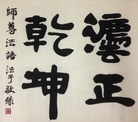 灋正
乾坤
師尊法語 子敬錄